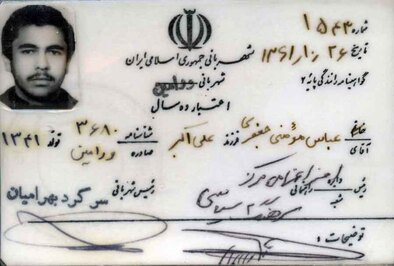 شماره ۱۵۴۴
تاریخ ۲۶ ر۱۰ر۱۳۶۱
شهربانی جمهوری اسلامی ایران
شهربانی ورامین
گواهینامه رانندگی پایه ۲
اعتبار ده سال
خانم آقای عباس مؤمنی جعفری فرزند علی اکبر شناسنامه ۳۶۸۰ صادره ورامین تولد ۱۳۴۱
رئیس شهربانی
سرگرد بهرامیان
رئیس شعبه راهنمائی
توضیحات :